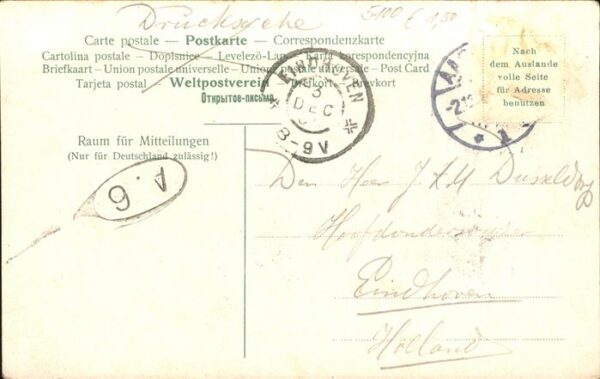 Drucksache
5100 € 1,50
Carte postale — Postkarte — Correspondenzkarte
Cartolina postale — Dopisnice — Levelező-La Karta korespondencyjna
Briefkaart - Union postale universelle - Union postale universelle - Post Card
Tarjeta postal — Weltpostverein Brefkort — Brevkort
Открытое-письмо
Nach
dem Auslande
volle Seite
für Adresse
benutzen
EINDHOVEN
3
DEC
8-9V
AA
2.12
1 * 1
Raum für Mitteilungen
(Nur für Deutschland zulässig!)
A.6
Den Heer J A M Dusseldorp
Hoofdonderwijzer
Eindhoven
Holland